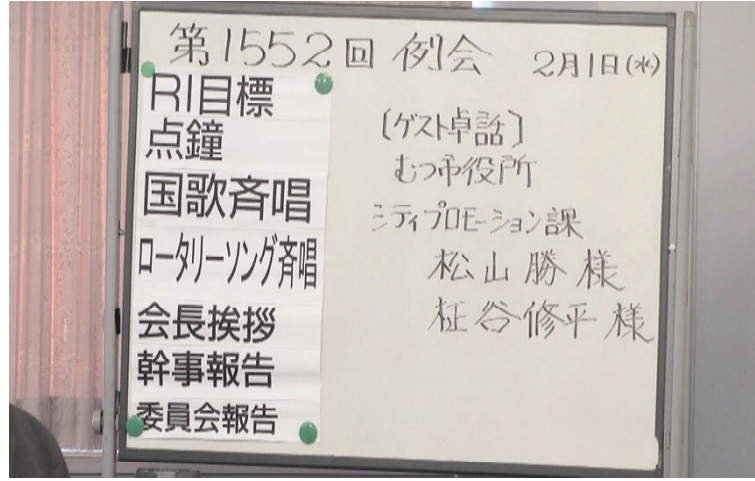 第1552回 例会 2月1日(水)
RI目標
点鐘
国歌斉唱
ロータリーソング斉唱
会長挨拶
幹事報告
委員会報告
[ゲスト卓話]
むつ市役所
シティプロモーション課
松山勝様
柾谷修平様